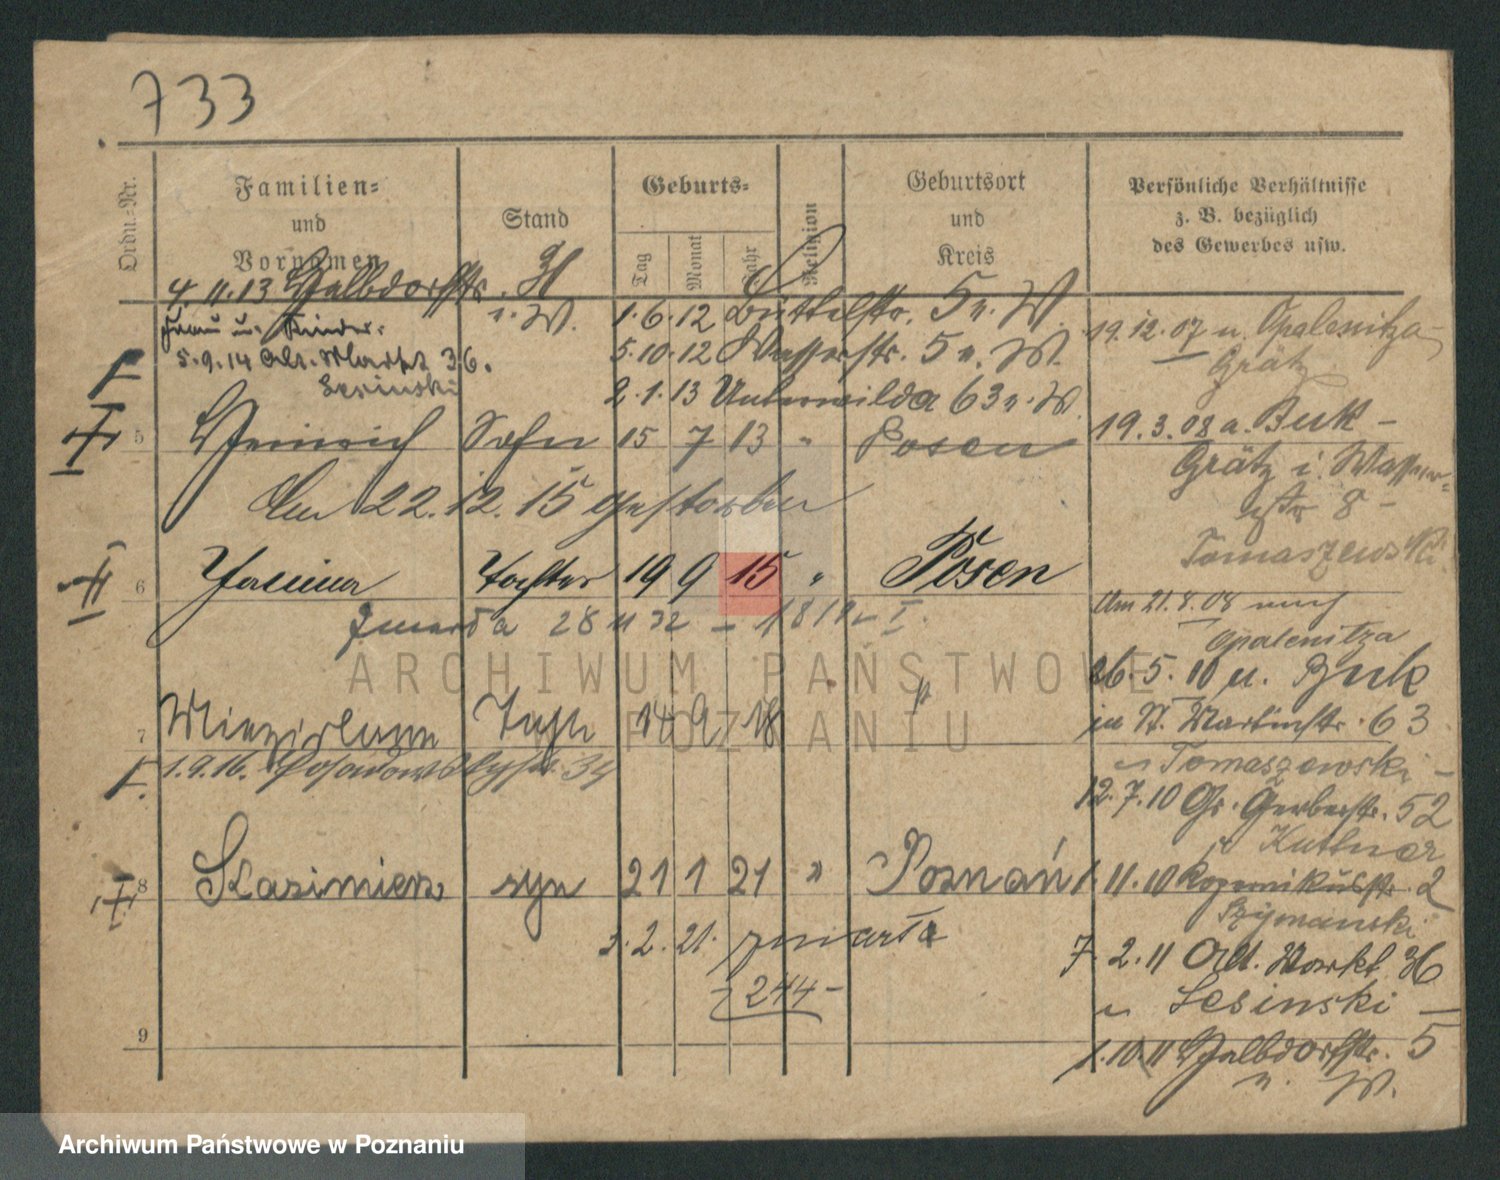 733
Ordn.-Nr.
Familien-
und
Vornamen
Stand
Geburts-
Tag
Monat
Jahr
Religion
Geburtsort
und
Kreis
Persönliche Verhältnisse
z. B. bezüglich
des Gewerbes usw.
4.11.13 Halbdorfstr.
Frau u. Kinder.
5.9.14 Alt. Markt 36.
Lesinski
1.6.12 Büttelstr. 5 n. W.
5.10.12 Wasserstr. 5 n. W.
2.1.13 Unterwilda 63 n. W.
5 Heinrich Sohn 15 7 13 " Posen
Am 22.12.15 gestorben
6 Janina Tochter 19 9 15 " Posen
28 11 32
7 14 9 18 "
1.9.16.
8 Kazimierz syn 21 1 21 " Poznań
3.2.21. zmarła
244
9
19.12.07 n. Opalenitza-
Grätz
19.3.08 a. Buk -
Grätz i. Wasser-
str 8 -
Tomaszewski
Am 21.8.08 nach
Opalenitza
26.5.10 u. Buk
in St. Martinstr. 63
Tomaszewski -
12.7.10 Gr. Gerberstr. 52
Kuttner
1.11.10 Kopernikusstr. 2
Szymanski
7.2.11 Alt. Markt 36
Lesinski -
1.10.11 Halbdorfstr. 5
n. W.
ARCHIWUM PAŃSTWOWE
POZNANIU
Archiwum Państwowe w Poznaniu